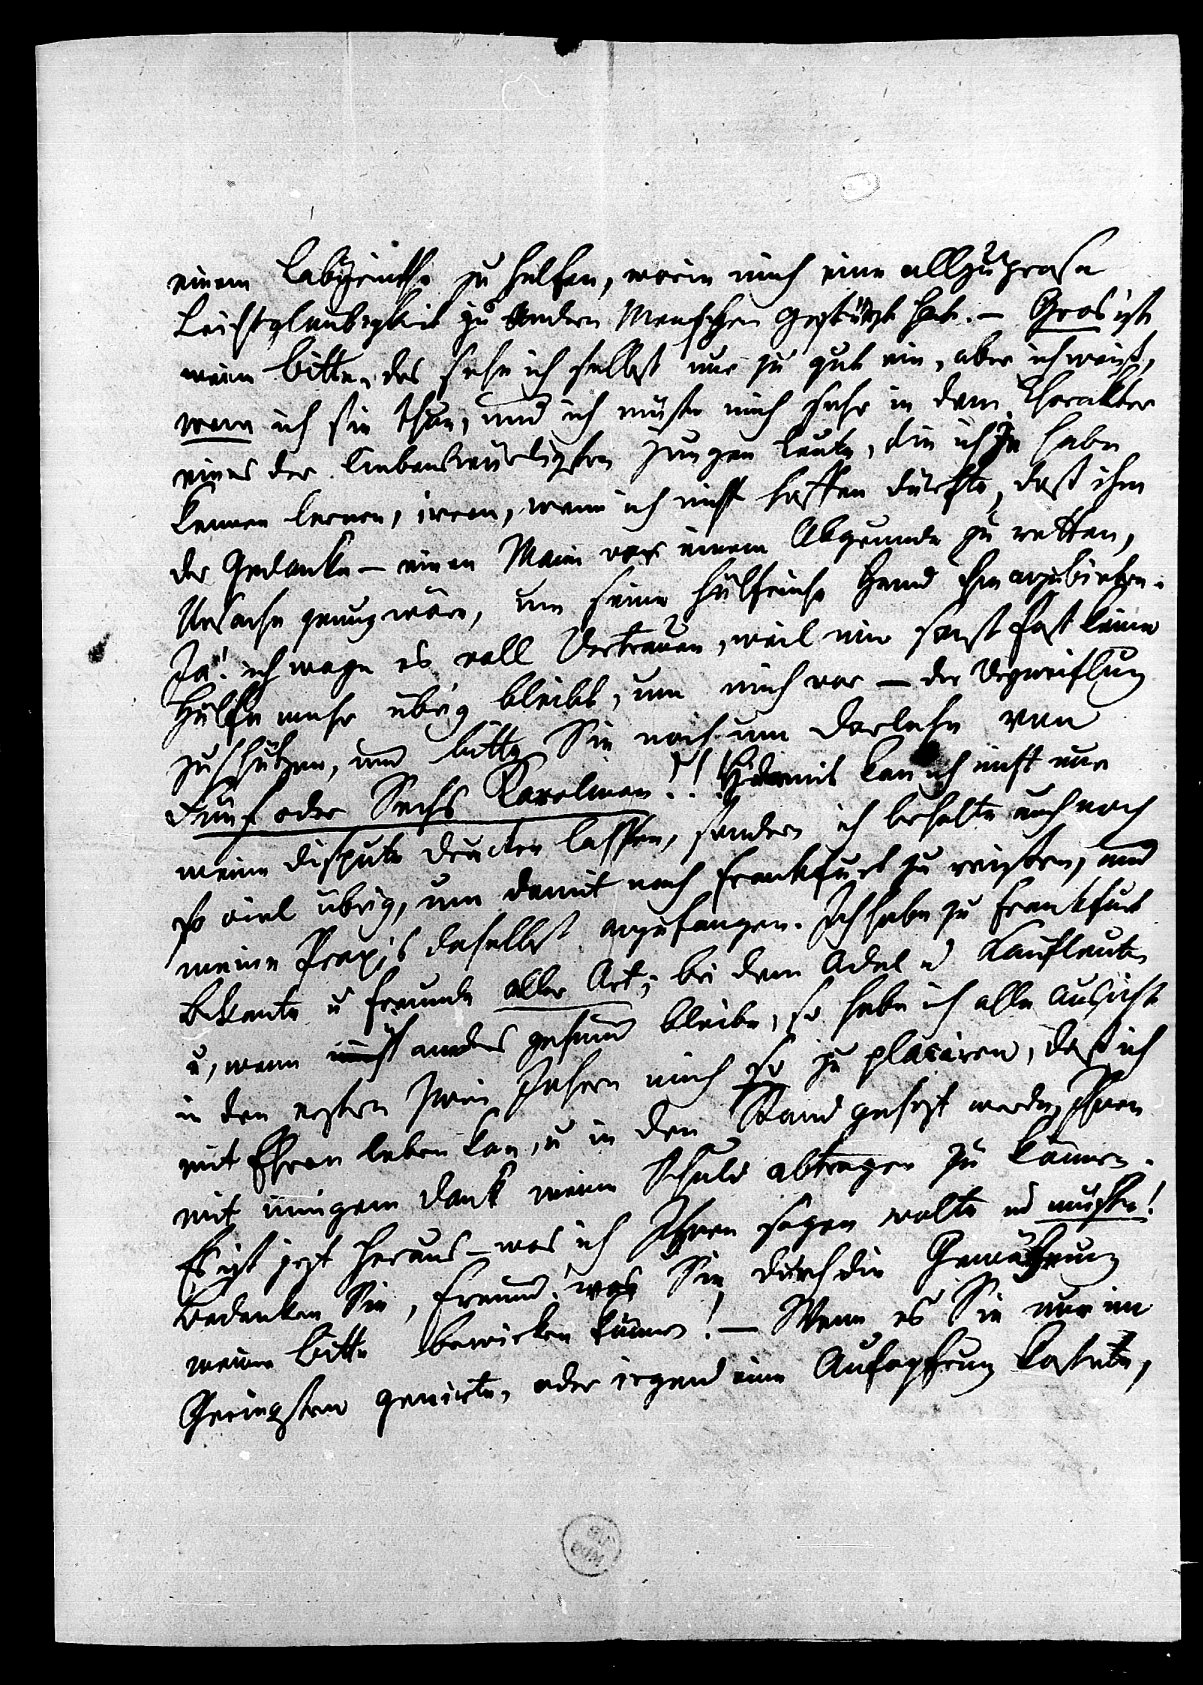 einem Labÿrinthe zu helfen, worin mich eine allzugrose
Leichtglaubigkeit zu andern Menschen gestürzt hat. — Gros ist
meine bitte, das sehe ich selbst nur zu gut ein, aber ich weiß,
wem ich sie thue, und ich müste mich sehr in dem Charakter
eines der liebenswürdigsten jungen Leute, die ich je habe
kennen lernen, irren, wenn ich nicht hoffen dürfte, daß ihm
der Gedanke — einen Mann vor einem Abgrunde zu retten,
Ursache genug wäre, um seine hülfreiche Hand ihm anzubieten.
Ja! ich wage es voll Vertrauen, weil mir sonst fast keine
Hülfe mehr übrig bleibt, um mich vor — der Verzweiflung
zu schützen, und bitte Sie noch um Darlehn von
Fünf oder Sechs Karolinen!! Hiermit kan ich nicht nur
meine dispute drucken lassen, sondern ich behalte auch noch
so viel übrig, um damit nach Frankfurt zu reißen, und
meine Praxis daselbst anzufangen. Ich habe zu Frankfurt
bekante u freunde aller Art, bei dem Adel u Kaufleute
u, wenn anders gesund bleibe, so habe ich alle Aussicht
in den ersten zwei Jahren mich so zu placiren, daß ich
mit Ehren leben kan, u in den Stand gesezt werde, Ihnen
mit innigem Dank meine Schuld abtragen zu können.
Es ist jezt heraus — was ich Ihnen sagen wolte und muste!
Bedenken Sie, Freund! was Sie durch die Gewährung
meiner bitte bewirken können! — Wenn es Sie nur im
Geringsten genirte, oder irgend eine Aufopfrung kostete,